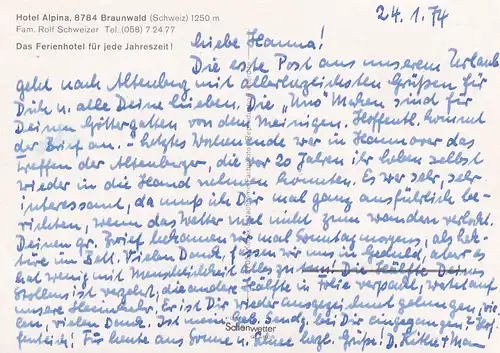 Hotel Alpina, 8784 Braunwald (Schweiz) 1250 m
Fam. Rolf Schweizer Tel. (058) 7 24 77
Das Ferienhotel für jede Jahreszeit!
24.1.74
Liebe Hanna!
Die erste Post aus unserem Urlaub
geht nach Altenburg mit allerherzlichsten Grüßen für
Dich u. alle Deine Lieben. Die "Uno" Marken sind für
Deinen Göttergatten von dem Meinigen. Hoffentl. kommt
der Brief an. - Letztes Wochenende war in Hannover das
Treffen der Altenburger, die vor 20 Jahren ihr Leben selbst
wieder in die Hand nehmen konnten. Es war sehr, sehr
interessant, da muß ich Dir mal ganz ausführlich be-
richten, wenn das Wetter mal nicht zum wandern verlockt.
Deinen gr. Brief bekamen wir mal Sonntagmorgens, als Lek-
türe im Bett. Vielen Dank, fassen wir uns in Geduld, aber es
hat wenig mit Menschlichkeit alles zu tun! Die Hälfte Deines
Stollens ist verzehrt, die andere Hälfte in Folie verpackt, wartet auf
unsere Heimkehr. Er ist Dir wieder ausgezeichnet gelungen, vie-
len, vielen Dank. Ist mein Sendg. bei Dir eingegangen? Hof-
fentlich! Für heute aus Sonne u. herzl. Grüße! D. u.
Schönwetter